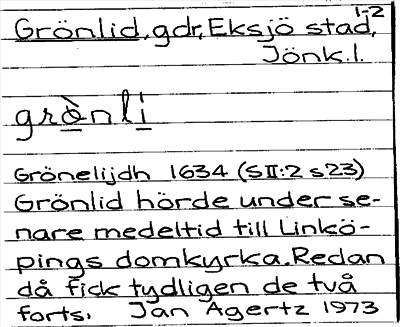 1-2
Grönlid, gdr, Eksjö stad,
Jönk.l.
grò̱nli̱
Grönelijdh 1634 (SII:2 s23)
Grönlid hörde under se-
nare medeltid till Linkö-
pings domkyrka. Redan
då fick tydligen de två
forts. Jan Agertz 1973